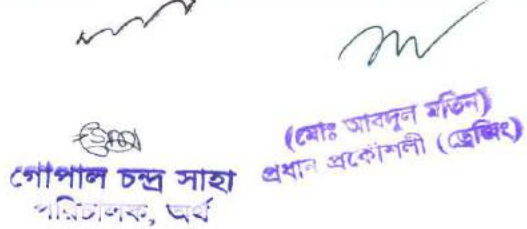 গোপাল চন্দ্র সাহা
পরিচালক, অর্থ
(মোঃ আবদুল মতিন)
প্রধান প্রকৌশলী (ড্রেজিং)